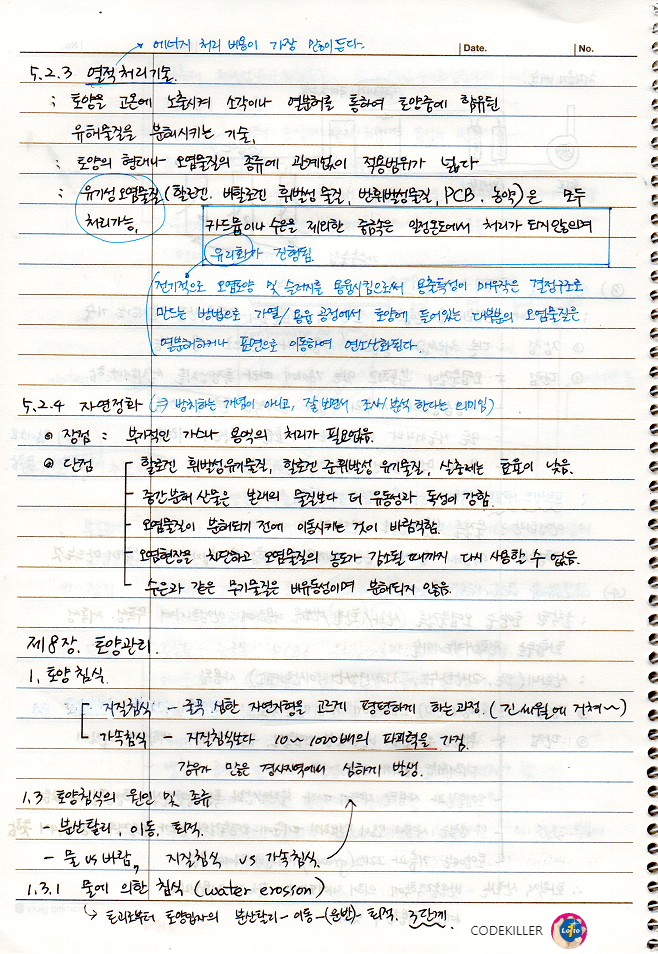 → 에너지 처리 비용이 가장 많이 든다.
Date. No.
5.2.3 열적처리기술.
: 토양을 고온에 노출시켜 소각이나 열분해를 통하여 토양중에 함유된
유해물질을 분해시키는 기술,
: 토양의 형태나 오염물질의 종류에 관계없이 적용범위가 넓다
: 유기성 오염물질 (할로겐. 비할로겐 휘발성 물질, 반휘발성물질, PCB. 농약)은 모두
처리가능,
카드뮴이나 수은을 제외한 중금속은 일정온도에서 처리가 되지않으며
유리화가 진행됨.
전기적으로 오염토양 및 슬러지를 용융시킴으로써 용출특성이 매우작은 결정구조로
만드는 방법으로 가열/용융 공정에서 토양에 들어있는 대부분의 오염물질은
열분해하거나 표면으로 이동하여 연소산화된다.
5.2.4 자연정화 (⇒ 방치하는 개념이 아니고, 잘 보면서 조사/분석 한다는 의미임)
⊙ 장점 : 부가적인 가스나 용액의 처리가 필요없음.
⊙ 단점 - 할로겐 휘발성유기물질, 할로겐 준휘발성 유기물질, 살충제는 효율이 낮음.
- 중간분해 산물은 본래의 물질보다 더 유동성과 독성이 강함.
- 오염물질이 분해되기 전에 이동시키는 것이 바람직함.
- 오염현장을 차단하고 오염물질의 농도가 감소될 때까지 다시 사용할 수 없음.
- 수은과 같은 무기물질은 비유동성이며 분해되지 않음.
제8장. 토양관리.
1. 토양 침식.
지질침식 - 굴곡 심한 자연지형을 고르게 평탄하게 하는과정. (긴 세월에 거쳐~)
가속침식 - 지질침식보다 10~1020배의 파괴력을 가짐.
강우가 많은 경사지역에서 심하게 발생.
1.3 토양침식의 원인 및 종류
- 분산탈리, 이동, 퇴적.
- 물 vs 바람, 지질침식 vs 가속침식.
1.3.1 물에 의한 침식 (water erosson)
↳ 토괴로부터 토양입자의 분산탈리 - 이동 - (운반) - 퇴적. 3단계.
CODEKILLER Lotto